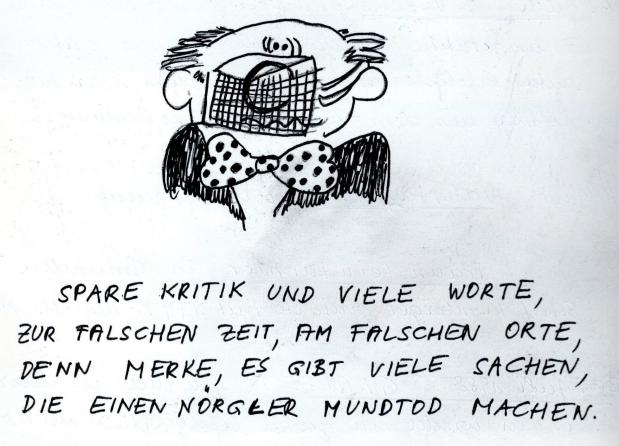 SPARE KRITIK UND VIELE WORTE,
ZUR FALSCHEN ZEIT, AM FALSCHEN ORTE,
DENN MERKE, ES GIBT VIELE SACHEN,
DIE EINEN NÖRGLER MUNDTOD MACHEN.